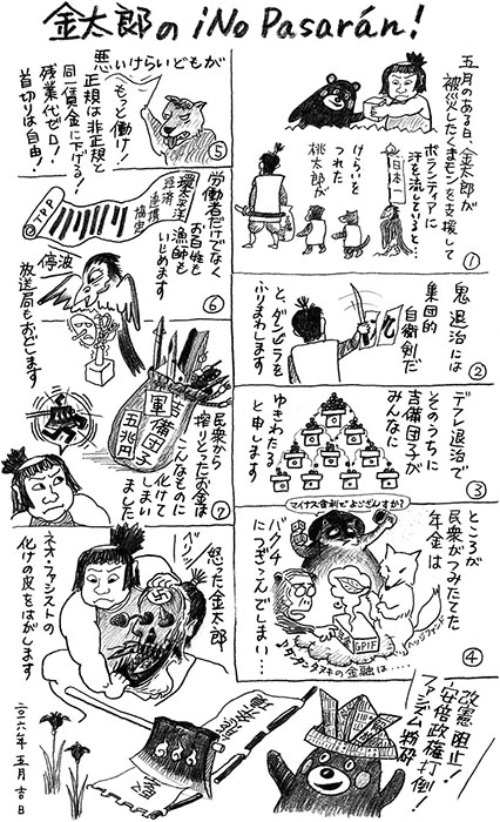 金太郎の ¡No Pasarán!
五月のある日、金太郎が
被災したくまモンを支援して
ボランティアに
汗を流していると…
日本一
けらいを
つれた
桃太郎が
①
鬼退治には
集団的
自衛剣だ
と、ダンビラを
ふりまわします
②
デフレ退治で
そのうちに
吉備団子が
みんなに
ゆきわたる
と申します
③
マイナス金利でよござんすか?
ところが
民衆がつみたてた
年金は
バクチ
につぎこんでしまい…
GPIF
ヘッジファンド
♪タンタンタヌキの金融は‥‥
④
悪いけらいどもが
もっと働け!
正規は非正規と
同一賃金に下げる!
残業代ゼロ!
首切りは自由!
⑤
労働者だけでなく
お百姓も
漁師も
いじめます
環太平洋
経済
連携
協定
TPP
停波
放送局もおどします
⑥
吉備団子
軍
五兆円
民衆から
搾りとったお金は
こんなものに
化けて
しまい
ました
⑦
ベリッ
怒った金太郎
ネオ・ファシストの
化けの皮をはがします
改憲阻止!
安倍政権打倒!
ファシズム粉砕
二〇一六年 五月 吉日